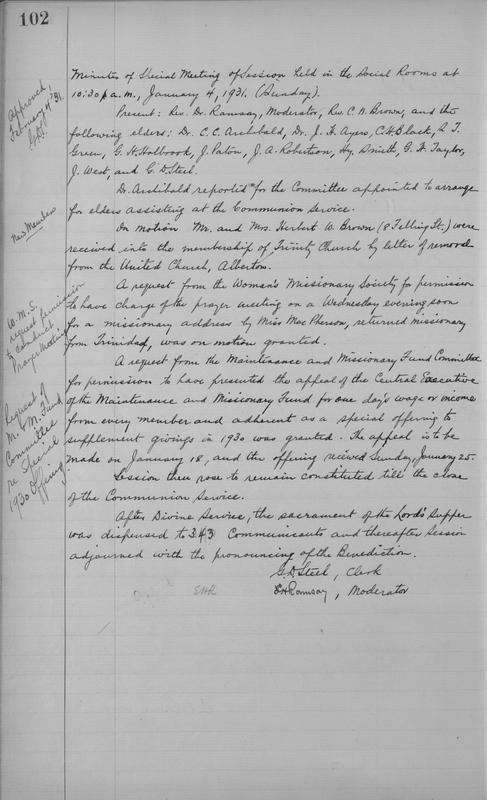 102
Approved,
February 4th '31.
Minutes of Special Meeting of Session held in the Social Rooms at
10:30 a.m., January 4, 1931. (Sunday).
Present: Rev. Dr. Ramsay, Moderator, Rev. C. N. Brown, and the
following elders: Dr. C. C. Archibald, Dr. J. H. Ayers, C. H. Black, R. T.
Green, G. H. Holbrook, J. Paton, J. A. Robertson, Hy. Smith, G. H. Taylor,
J. West, and G. D. Steel.
Dr. Archibald reported for the Committee appointed to arrange
for elders assisting at the Communion Service.
New Members
On motion Mr. and Mrs. Herbert W. Brown (8 Telling St.) were
received into the membership of Trinity Church by letter of removal
from the United Church, Alberton.
W. M. S.
request permission
to conduct
Prayer Meeting
A request from the Woman's Missionary Society for permission
to have charge of the prayer meeting on a Wednesday evening soon
for a missionary address by Miss MacPherson, returned missionary
from Trinidad, was on motion granted.
Request of
M. & M. Fund
Committee
re Special
1930 Offering
A request from the Maintenance and Missionary Fund Committee
for permission to have presented the appeal of the Central Executive
of the Maintenance and Missionary Fund for one day's wage or income
from every member and adherent as a special offering to
supplement givings in 1930 was granted. The appeal is to be
made on January 18, and the offering received Sunday, January 25.
Session then rose to remain constituted till the close
of the Communion Service.
After Divine Service, the sacrament of the Lord's Supper
was dispensed to 343 Communicants and thereafter Session
adjourned with the pronouncing of the Benediction.
G. D. Steel, Clerk
EHR
EHRamsay, Moderator